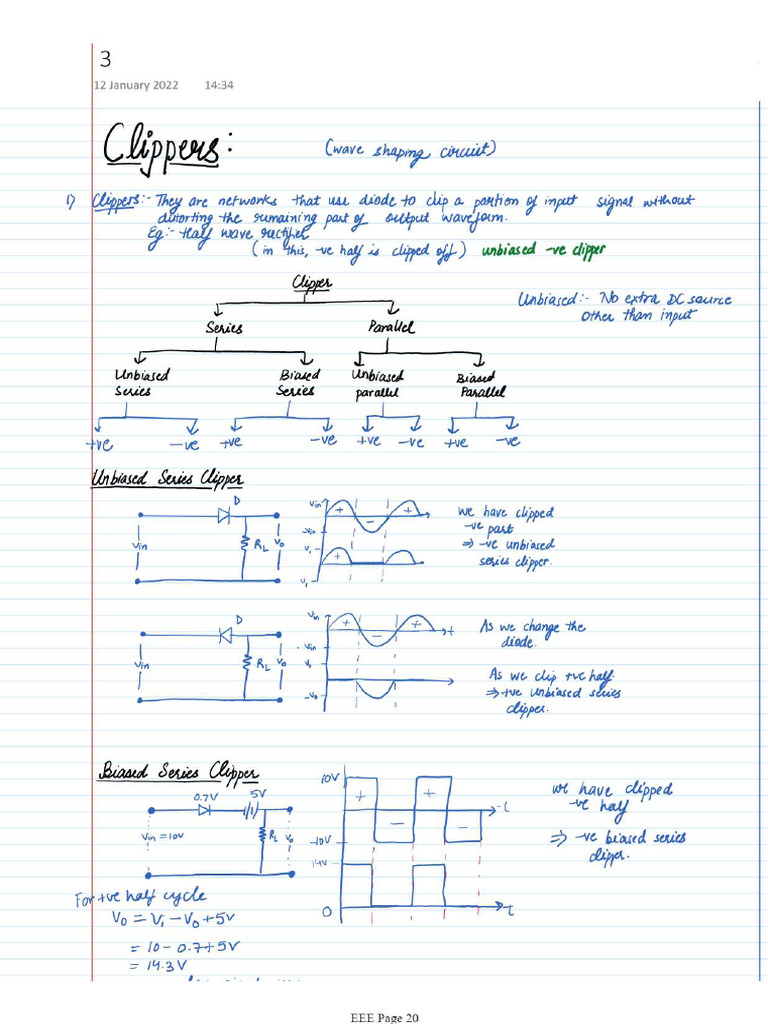 3
12 January 2022 14:34
Clippers:
(wave shaping circuit)
1) Clippers:- They are networks that use diode to clip a portion of input signal without
distorting the remaining part of output waveform.
Eg:- Half wave rectifier
(in this, -ve half is clipped off) unbiased -ve clipper
Clipper
Unbiased:- No extra DC source
other than input
Series Parallel
Unbiased Series Biased Series Unbiased parallel Biased Parallel
+ve -ve +ve -ve +ve -ve +ve -ve
Unbiased Series Clipper
D
Vin RL Vo
Vin + - +
-Vin
V1 +
V1
we have clipped
-ve part
⇒ -ve unbiased
series clipper.
D
Vin RL Vo
Vin + - + t
-Vin
V1
-Vo
As we change the
diode.
As we clip +ve half.
⇒ +ve unbiased series
clipper.
Biased Series Clipper
0.7V 5V
Vin = 10V RL Vo
10V + + t
-10V - -
14V
0 t
we have clipped
-ve half
⇒ -ve biased series
clipper.
For +ve half cycle
Vo = V1 - Vo + 5V
= 10 - 0.7 + 5V
= 14.3V
EEE Page 20